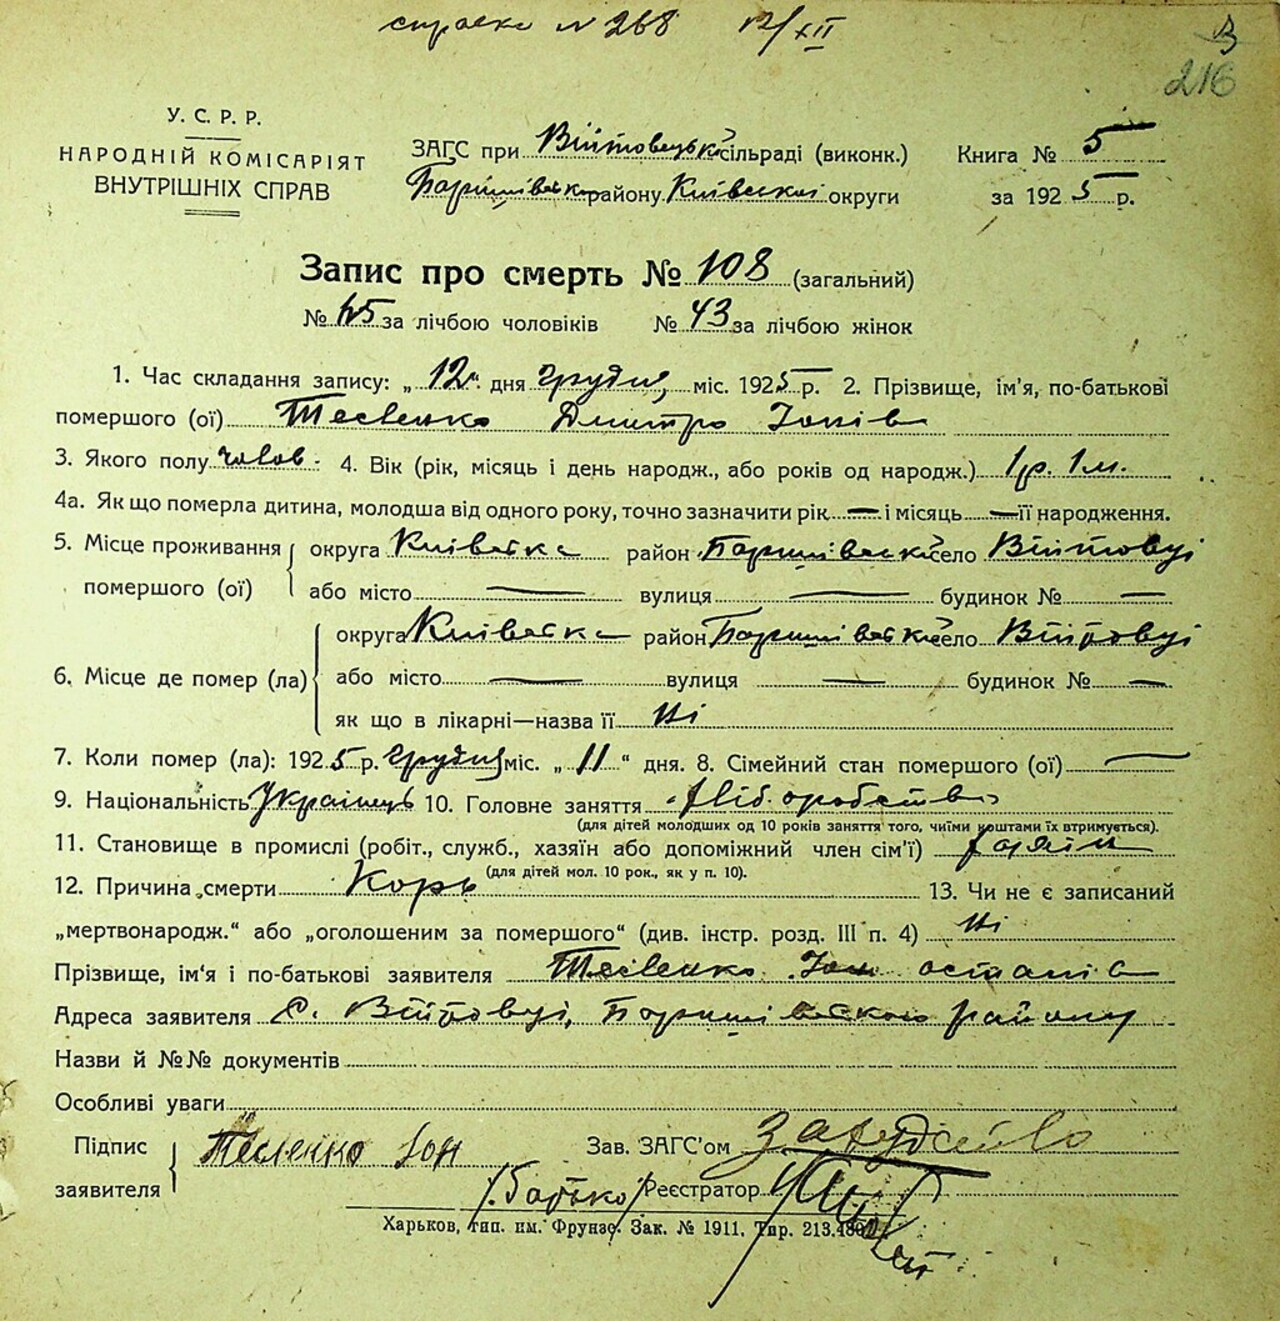 справка N 268 12/XII
3
216
У. С. Р. Р.
НАРОДНІЙ КОМІСАРІЯТ
ВНУТРІШНІХ СПРАВ
ЗАГС при Війтовецькій сільраді (виконк.)
Баришівськ району Київської округи
Книга № 5
за 1925 р.
Запис про смерть № 108 (загальний)
№ 65 за лічбою чоловіків № 43 за лічбою жінок
1. Час складання запису: „ 12 " дня грудня міс. 1925 р. 2. Прізвище, ім’я, по-батькові
помершого (ої) Тесленко Дмитро Іонів
3. Якого полу чолов. 4. Вік (рік, місяць і день народж., або років од народж.) 1 р. 1 м.
4а. Як що померла дитина, молодша від одного року, точно зазначити рік — і місяць — її народження.
5. Місце проживання помершого (ої) округа Київська район Баришівський село Війтовці
або місто — вулиця — будинок № —
6. Місце де помер (ла) округа Київська район Баришівський село Війтовці
або місто — вулиця — будинок № —
як що в лікарні—назва її Ні
7. Коли помер (ла): 1925 р. грудня міс. „ 11 “ дня. 8. Сімейний стан помершого (ої) —
9. Національність Українець 10. Головне заняття Хліборобство
(для дітей молодших од 10 років заняття того, чиїми коштами їх втримується).
11. Становище в промислі (робіт., служб., хазяїн або допоміжний член сім’ї) хазяїн
(для дітей мол. 10 рок., як у п. 10).
12. Причина смерти Корь 13. Чи не є записаний
„мертвонародж.“ або „оголошеним за помершого“ (див. інстр. розд. III п. 4) Ні
Прізвище, ім‘я і по-батькові заявителя Тесленко Іон
Адреса заявителя с. Війтовці, Баришівського району
Назви й №№ документів
Особливі уваги
Підпис заявителя Тесленко Іон
Зав. ЗАГС’ом
/Батько/ Реєстратор
Харьков, тип. им. Фрунзе. Зак. № 1911. Тир. 213.